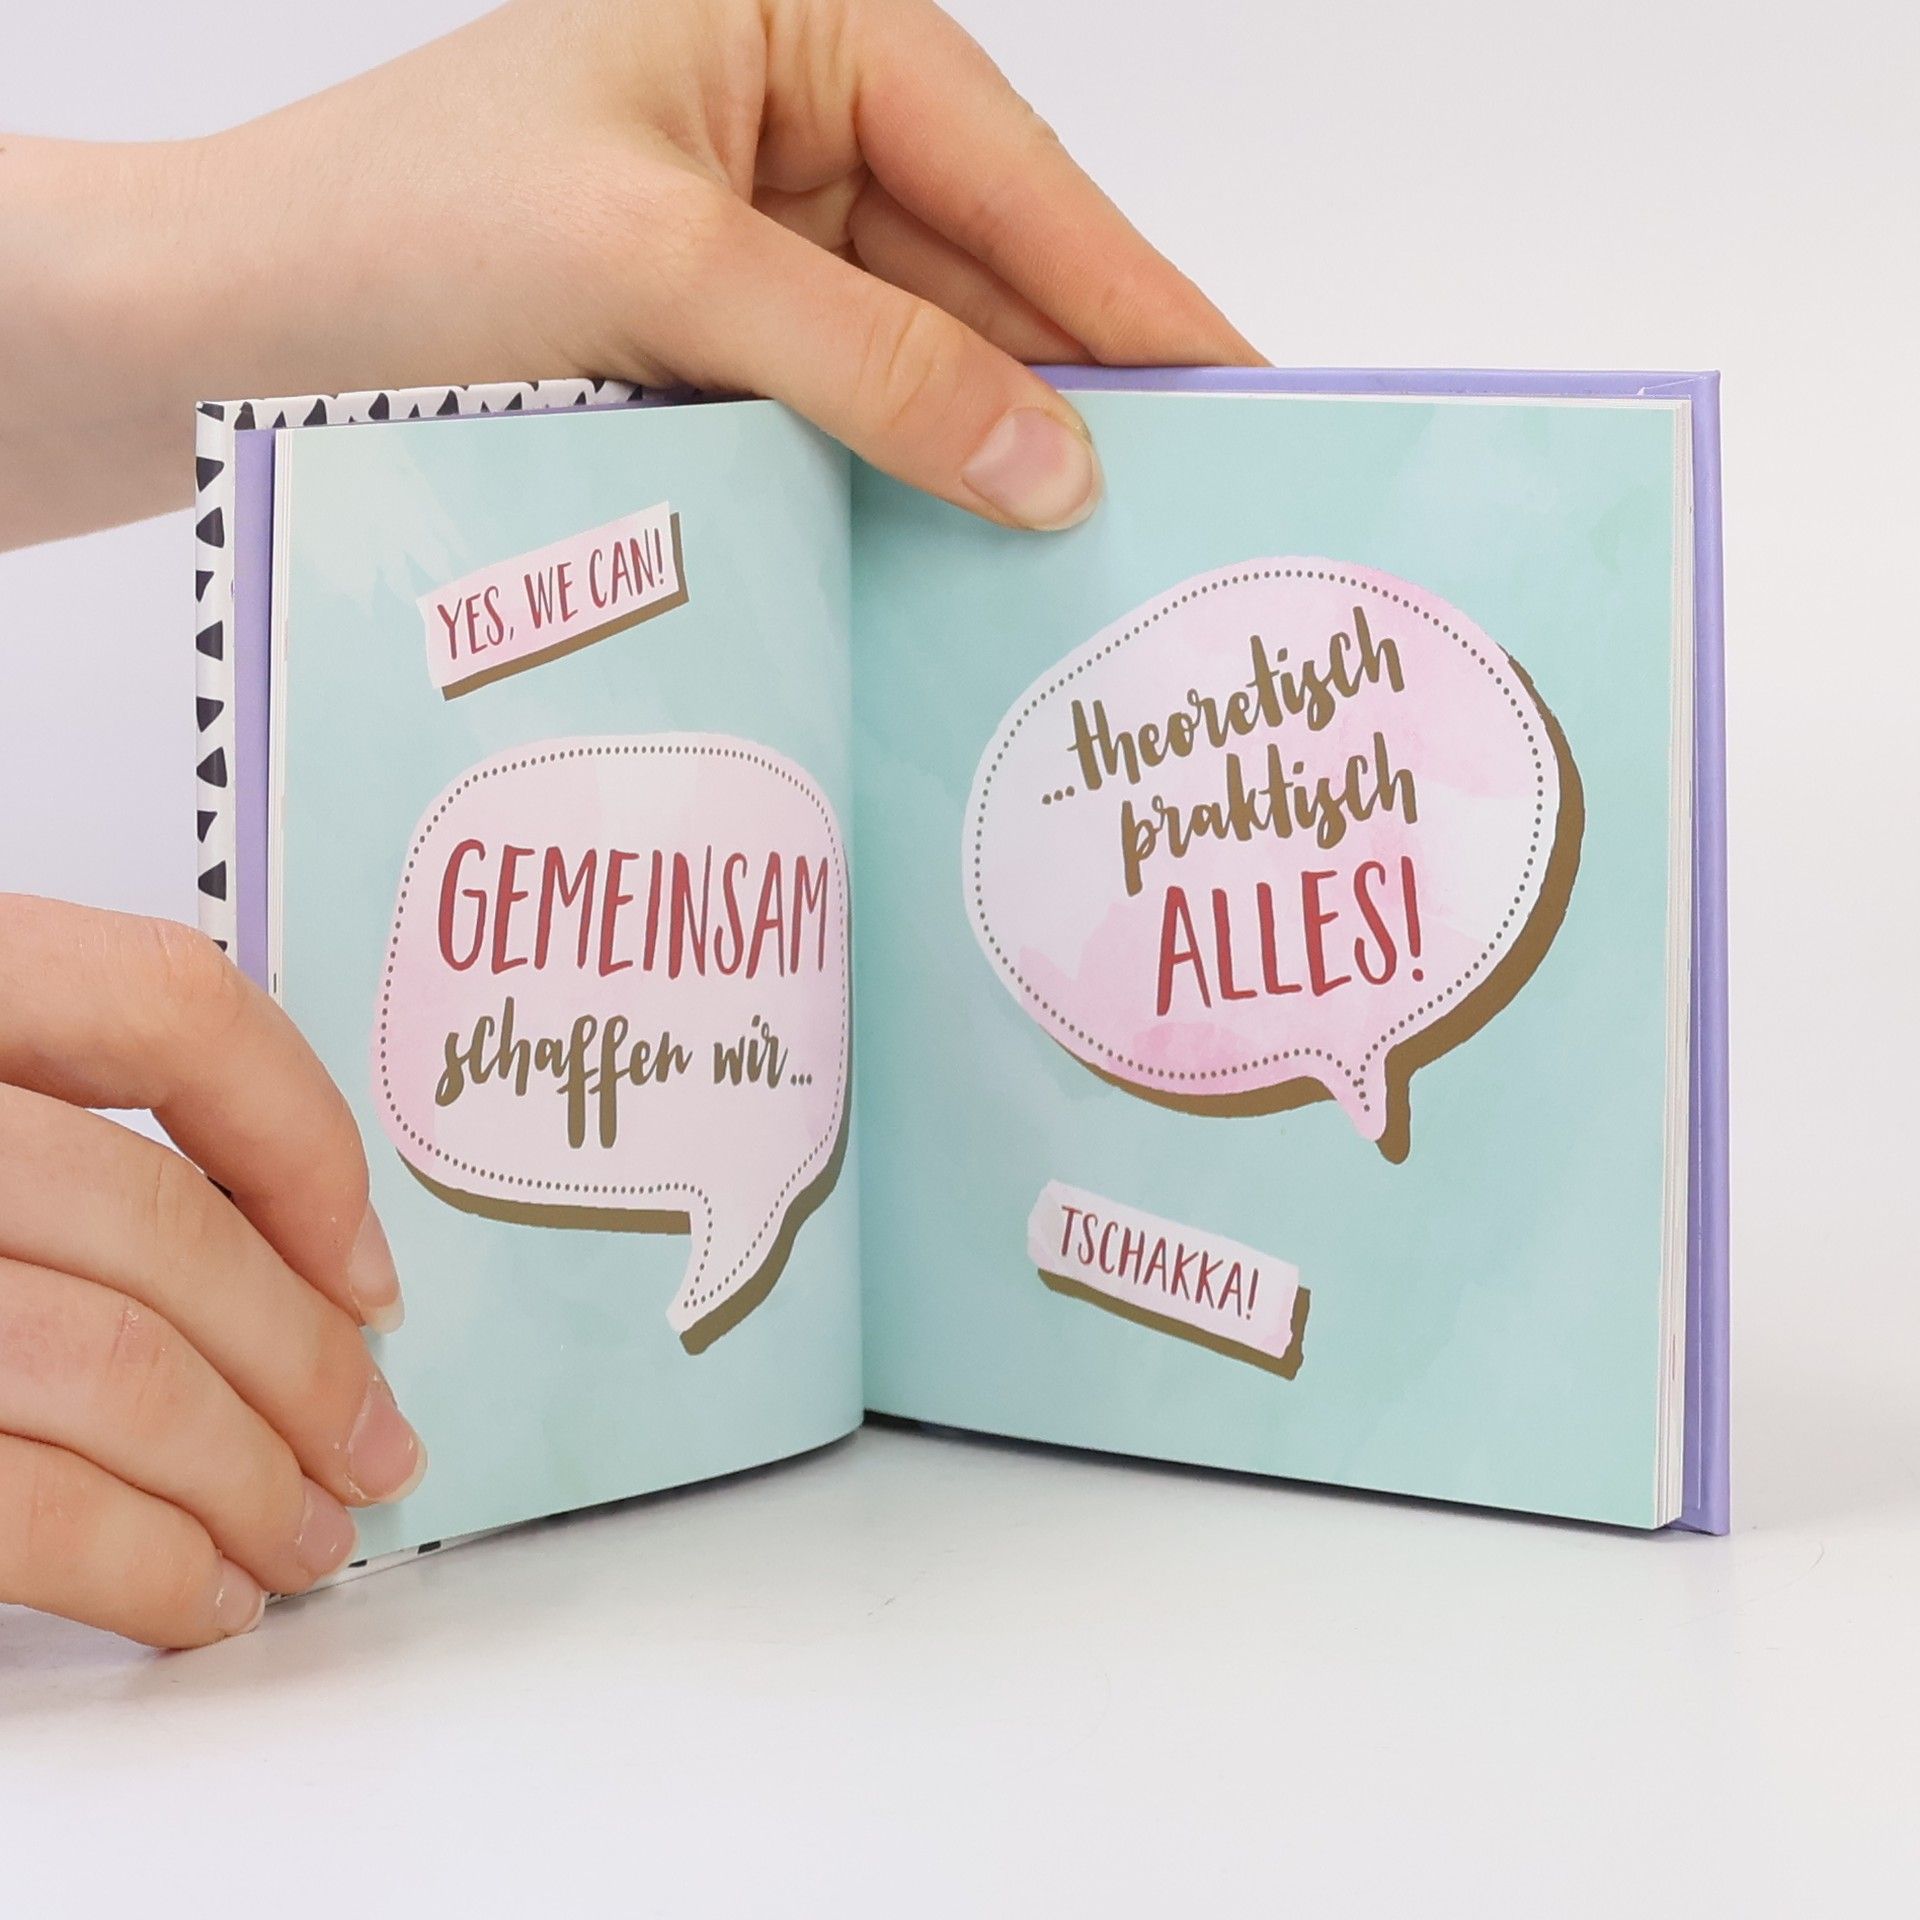 YES, WE CAN!
GEMEINSAM
schaffen wir...
...theoretisch
praktisch
ALLES!
TSCHAKKA!